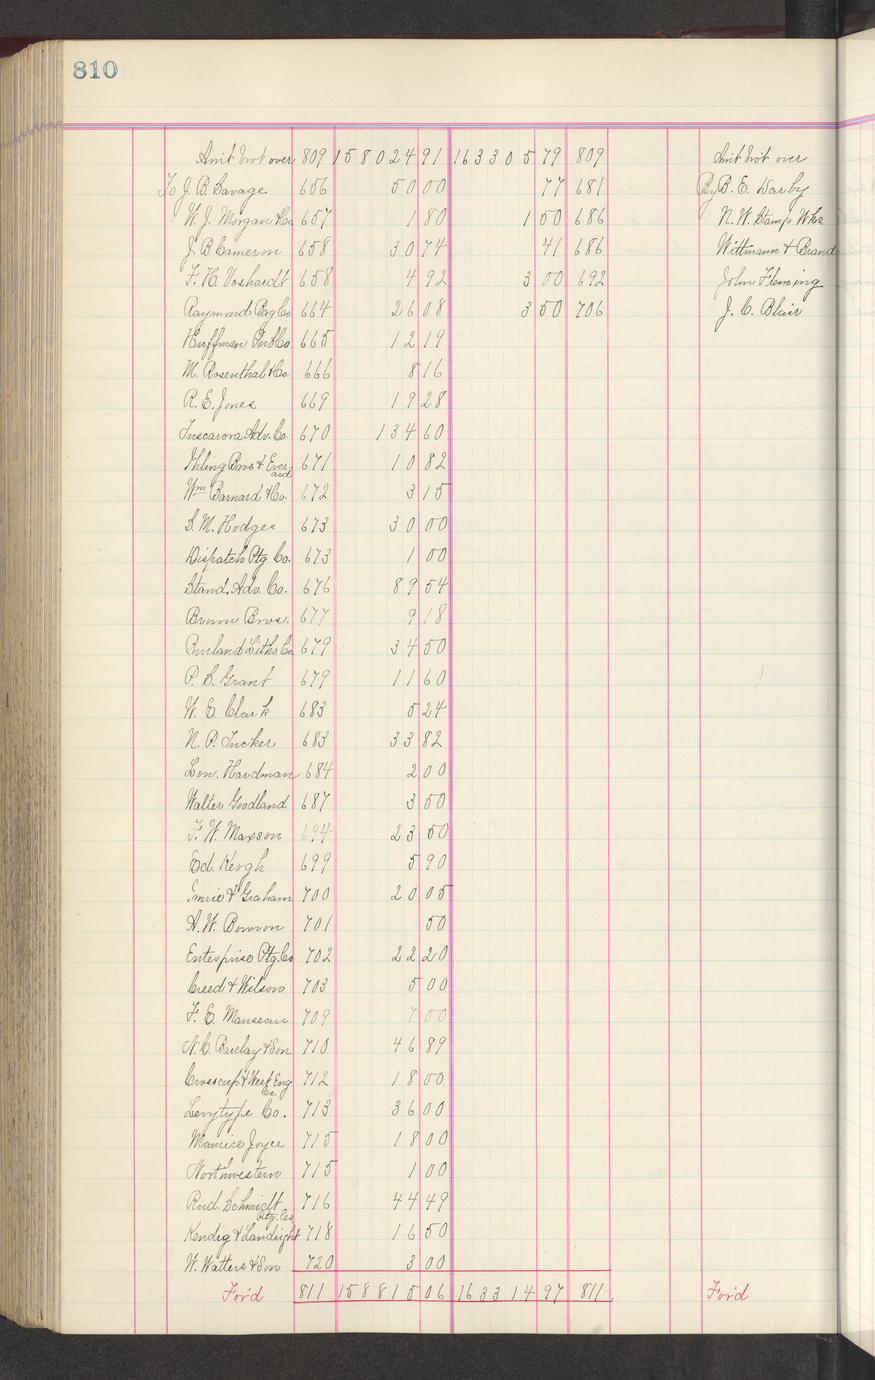 810
Am't bro't over 809 158024 91 163305 79 809 Am't bro't over
To J. B. Savage 656 50 00 77 681 By B. E. Darby
W. J. Morgan & Co. 657 1 80 1 50 686 N. W. Stamp Wks
J. B. Cameron 658 30 74 41 686 Wittmann & Brand
F. H. Voshardt 658 4 92 3 00 692 John Fleming
Raymond Bag Co 664 26 08 3 50 706 J. C. Blair
Huffman Co 665 12 19
M. Rosenthal & Co. 666 8 16
R. E. Jones 669 19 28
Tuscarora Adv. Co. 670 134 60
Ihling Bros & Everard 671 10 82
Wm Barnard & Co. 672 3 15
S. M. Hodges 673 30 00
Dispatch Ptg Co. 673 1 00
Stand. Adv. Co. 676 89 54
Brown Bros. 677 9 18
Burland Litho Co. 679 34 50
P. S. Grant 679 11 60
W. E. Clark 683 5 24
N. P. Tucker 683 33 82
Lon. Hardman 684 2 00
Walter Goodland 687 3 50
F. W. Maxson 694 23 50
Ed. Keogh 699 5 90
Emrie & Graham 700 20 05
A. W. Bowron 701 50
Enterprise Ptg. Co 702 22 20
Creed & Wilson 703 5 00
F. E. Manseau 709 7 00
N. C. Barclay & Son 710 46 89
Crosscup & West Eng Co. 712 18 00
Levytype Co. 713 36 00
Maurice Joyce 715 18 00
Northwestern 715 1 00
Rud. Schmidt Ptg. Co. 716 44 49
Kendig & Landight 718 16 50
W. Watters & Son 720 3 00
For'd 811 158815 06 163314 97 811 For'd